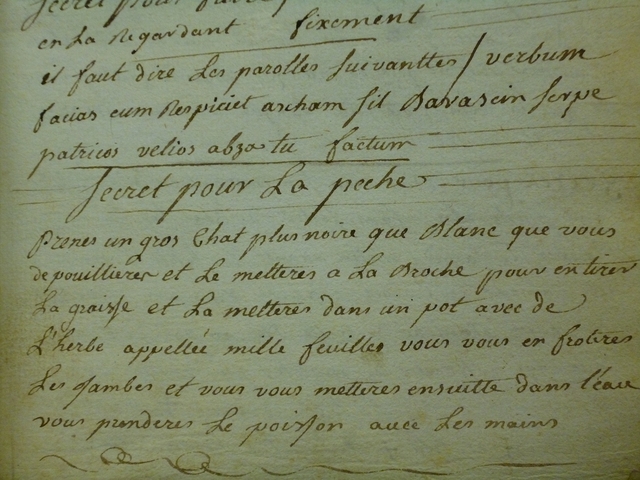 Secret pour faire
en La Regardant fixement
il faut dire Les parolles suivanttes / verbum
facias cum Respiciet ascham sil Davascin serpe
patricos velios abza tu factum
Secret pour La peche
Prenes un gros Chat plus noire que Blanc que vous
depouillieres et Le metteres a La Broche pour en tirer
La graisse et La metteres dans un pot avec de
L'herbe appellée mille feuilles vous vous en froteres
Les Jambes et vous vous metteres ensuitte dans l'éau
vous prenderes Le poisson avec Les mains